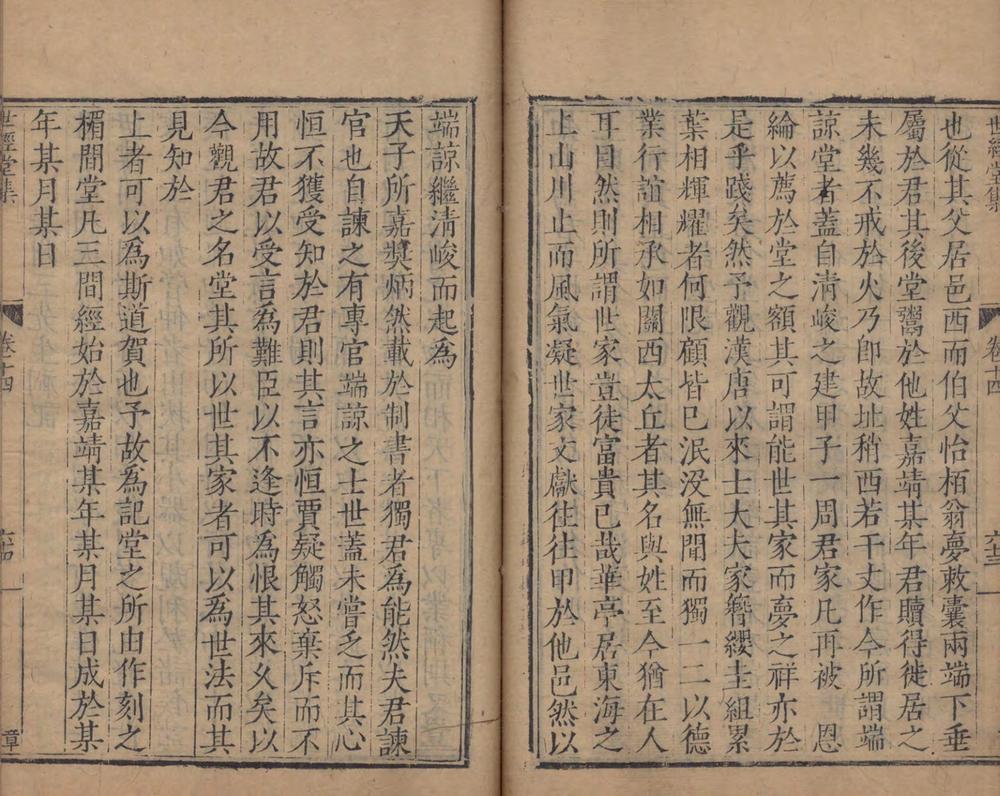 世經堂集
卷十四
六十三
也從其父居邑西而伯父怡栢翁夢敕囊兩端下垂
屬於君其後堂鬻於他姓嘉靖某年君贖得徙居之
未幾不戒於火乃卽故址稍西若干丈作今所謂端
諒堂者蓋自淸峻之建甲子一周君家凡再被 恩
綸以薦於堂之額其可謂能世其家而夢之祥亦於
是乎踐矣然予觀漢唐以來士大夫家簪纓圭組累
葉相輝耀者何限顧皆已泯沒無聞而獨一二以德
業行誼相承如關西太丘者其名與姓至今猶在人
耳目然則所謂世家豈徒富貴已哉華亭居東海之
上山川止而風氣凝世家文獻往往甲於他邑然以
端諒繼淸峻而起爲
天子所嘉奬炳然載於制書者獨君爲能然夫君諫
官也自諫之有專官端諒之士世蓋未嘗乏而其心
恒不獲受知於君則其言亦恒賈疑觸怒棄斥而不
用故君以受言為難臣以不逢時為恨其來久矣以
今觀君之名堂其所以世其家者可以為世法而其
見知於
上者可以為斯道賀也予故爲記堂之所由作刻之
楣間堂凡三間經始於嘉靖某年某月某日成於某
年某月某日
世經堂集
卷十四
六十四
章